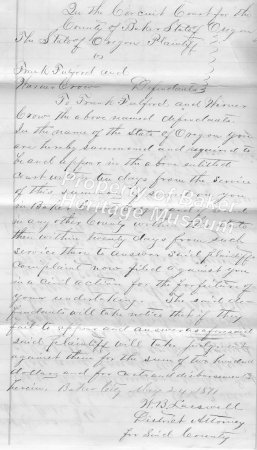 In the Circuit Court for the
County of Baker State of Oregon
The State of Oregon Plaintiff
vs
Frank Fulford and
Warner Crow Defendants
To Frank Fulford and Warner
Crow the above named defendants
In the name of the State of Oregon you
are hereby summoned and required to
be and appear in the above entitled
court within ten days from the service
of this summons if served on you
in Baker County
in any other County within
then within twenty days from such
service then to answer said plaintiffs
complaint now filed against you
in a civil action for the forfeiture of
your undertaking. The said de-
fendants will take notice that if they
fail to appear and answer as aforesaid
said plaintiffs will take judgment
against them for the sum of two hundred
dollars and for costs and disbursements
herein. Baker City 24 1871
W.B.
District Attorney
for Said County
Property of Baker
Heritage Museum